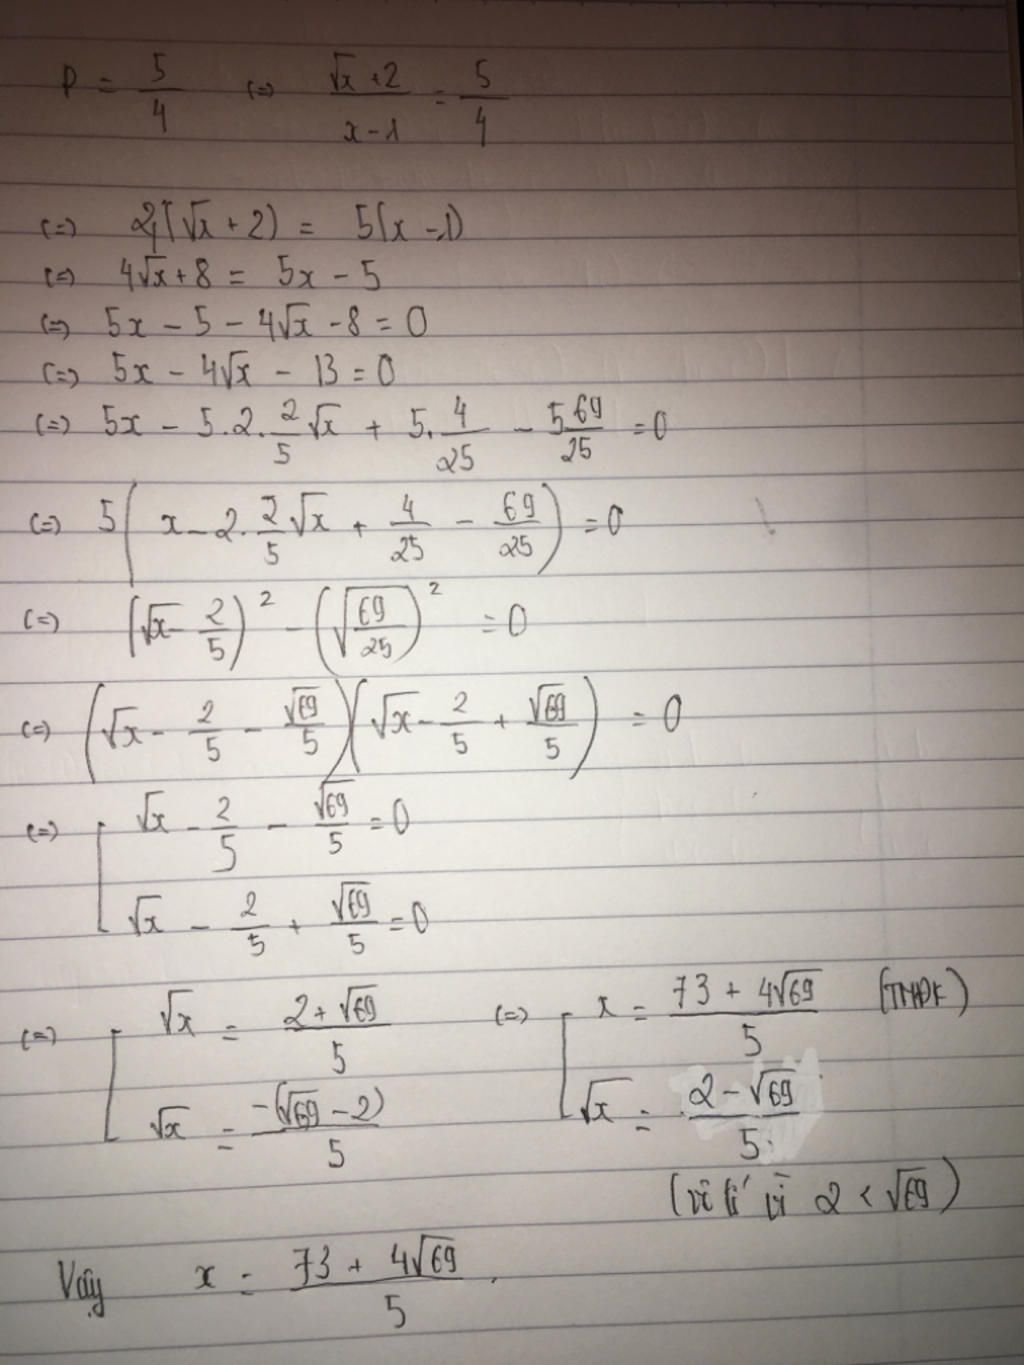 P = 5/4 (=) (√x + 2)/(x - 1) = 5/4
(=) 4(√x + 2) = 5(x - 1)
(=) 4√x + 8 = 5x - 5
(=) 5x - 5 - 4√x - 8 = 0
(=) 5x - 4√x - 13 = 0
(=) 5x - 5.2.2/5√x + 5.4/25 - 5.69/25 = 0
(=) 5(x - 2.2/5√x + 4/25 - 69/25) = 0
(=) (√x - 2/5)² - (√(69/25))² = 0
(=) (√x - 2/5 - √69/5)(√x - 2/5 + √69/5) = 0
(=) [ √x - 2/5 - √69/5 = 0
√x - 2/5 + √69/5 = 0
(=) [ √x = (2 + √69)/5 (=) [ x = (73 + 4√69)/5 (TMĐK)
√x = -(√69 - 2)/5 √x = (2 - √69)/5
(vô lí vì 2 < √69)
Vậy x = (73 + 4√69)/5.